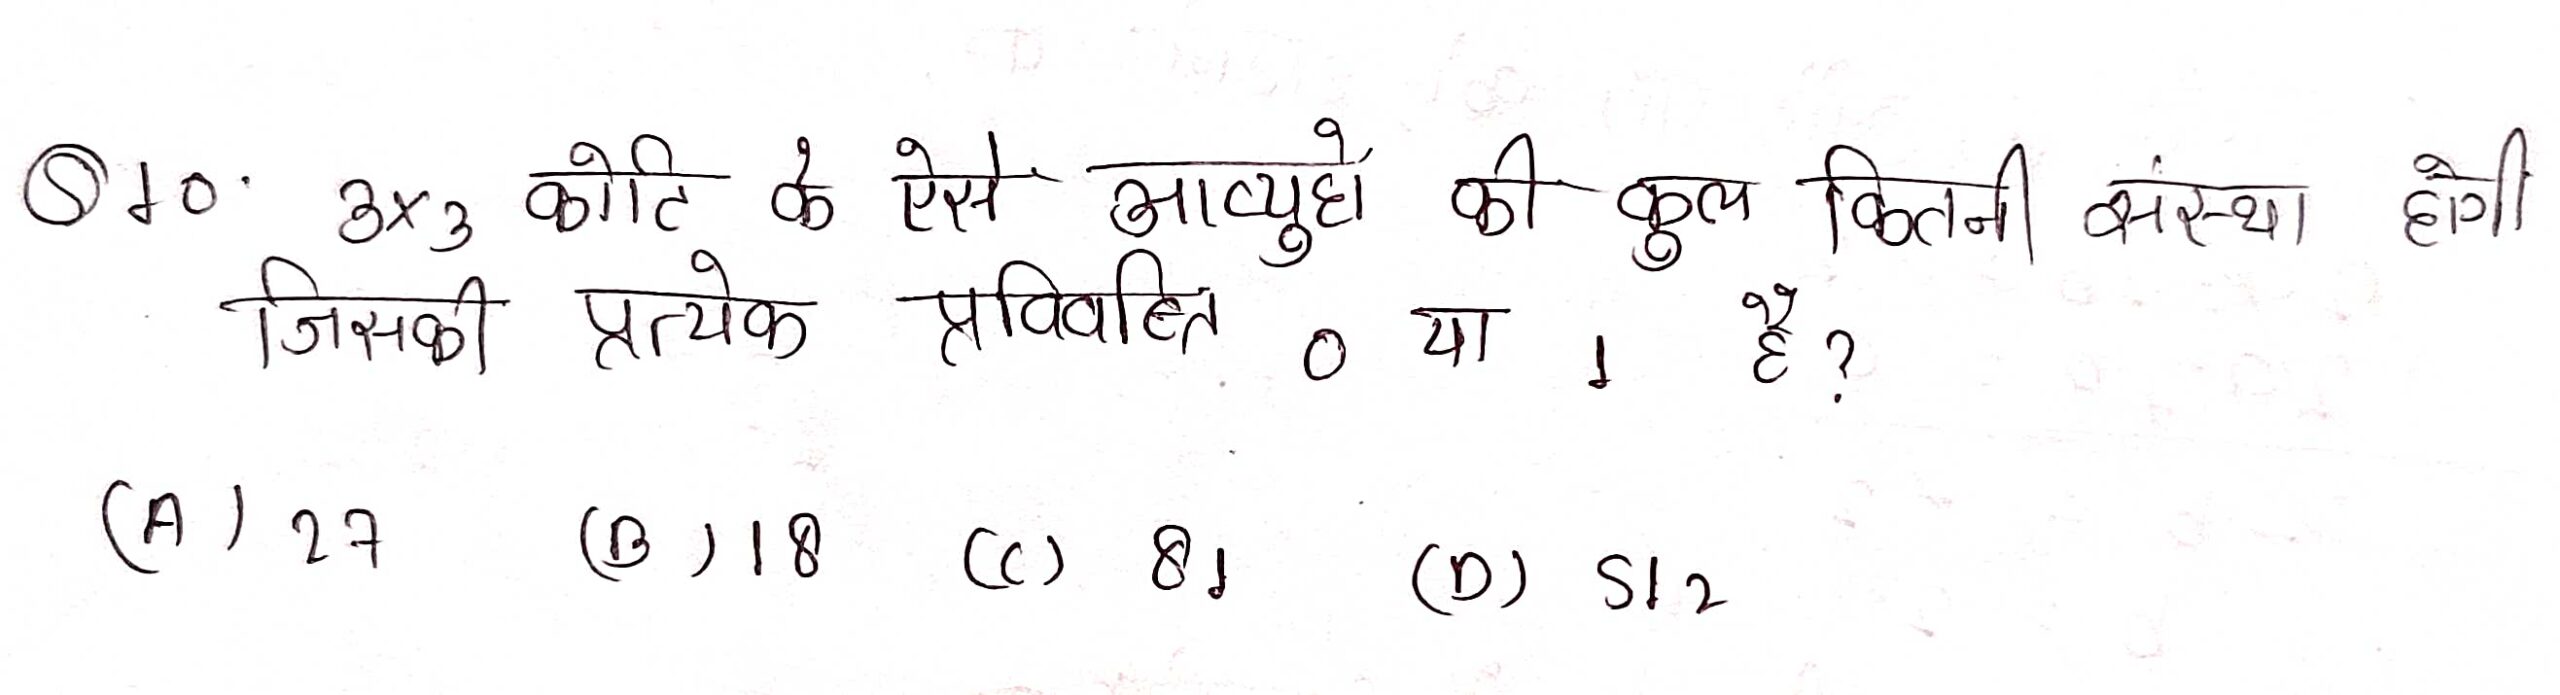 Q10. 3x3 कोटि के ऐसे आव्युहों की कुल कितनी संस्था होगी
जिसकी प्रत्येक प्रविवष्टि 0 या 1 है?
(A) 27 (B) 18 (C) 81 (D) 512